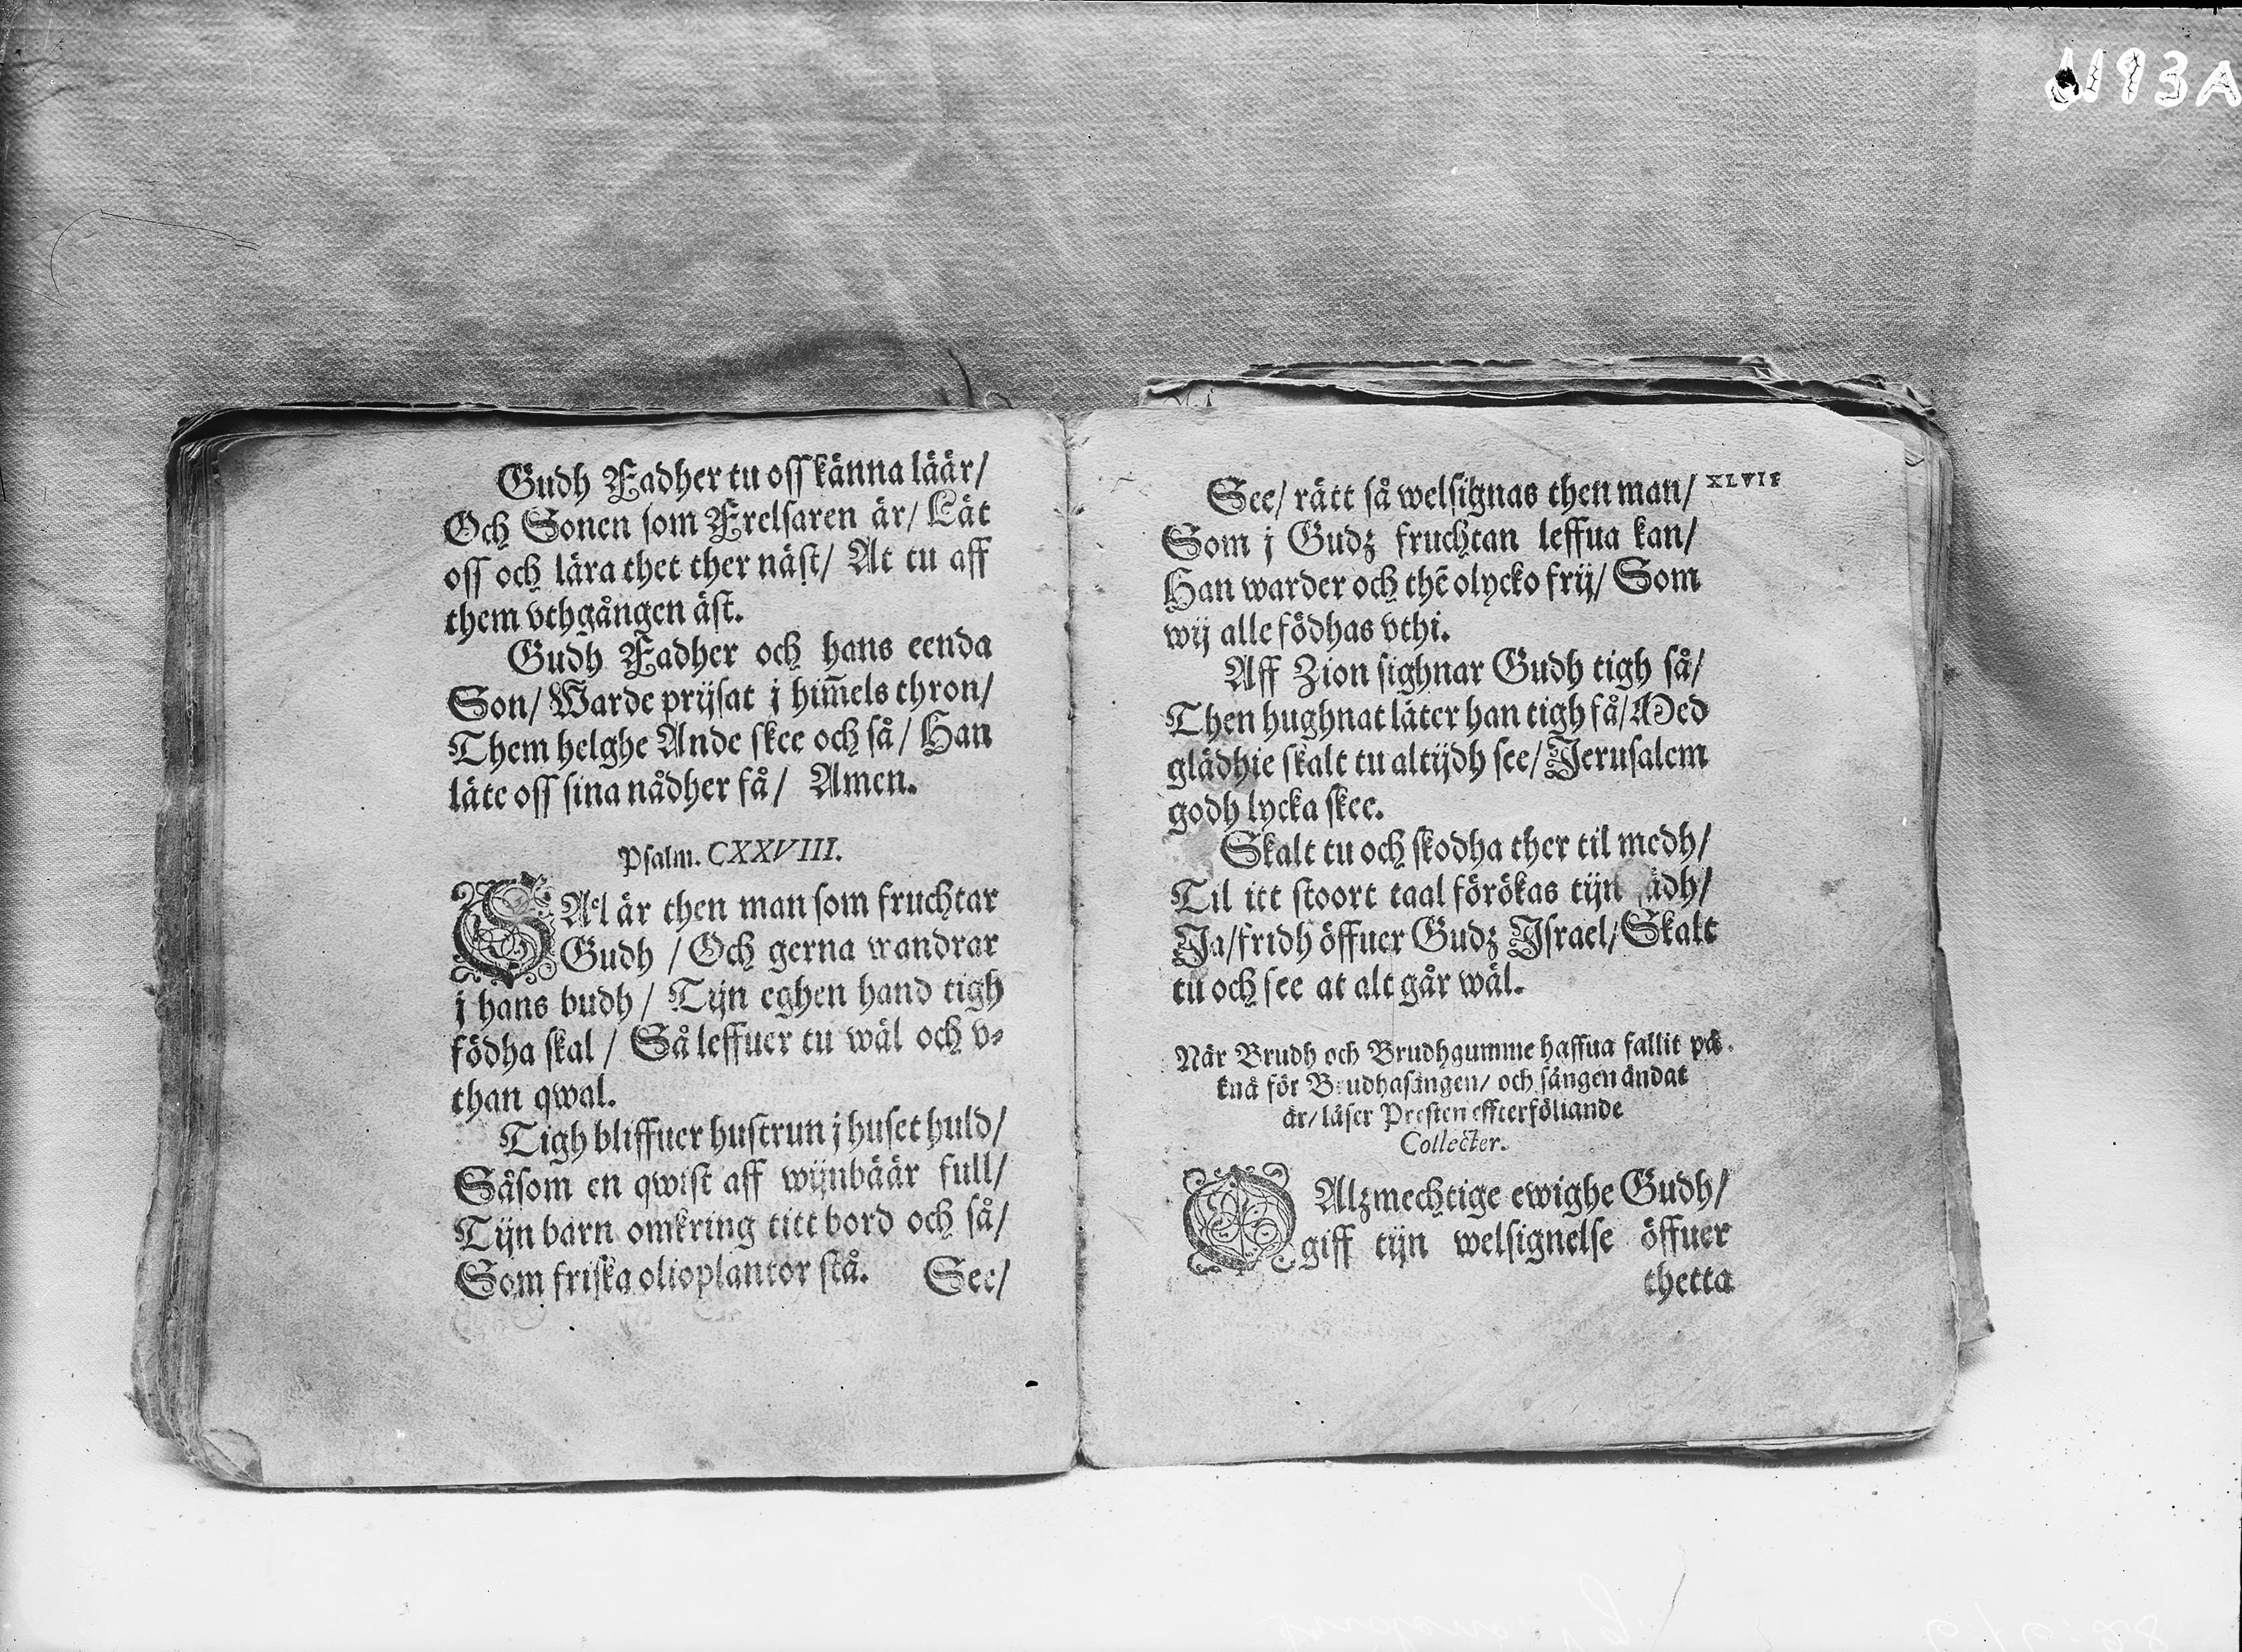 Gudh Fadher tu oss känna läär/
Och Sonen som Frelsaren är/ Lät
oss och lära thet ther näst/ At tu aff
them vthgången äst.
Gudh Fadher och hans eenda
Son/ Warde prijsat j him̃els thron/
Them helghe Ande skee och så/ Han
läte oss sina nådher få/ Amen.
Psalm. CXXVIII.
SAel är then man som fruchtar
Gudh / Och gerna wandrar
j hans budh / Tijn eghen hand tigh
födha skal / Så leffuer tu wäl och v-
than qwal.
Tigh bliffuer hustrun j huset huld/
Såsom en qwist aff wijnbäär full/
Tijn barn omkring titt bord och så/
Som friska olioplantor stå. See/
See/ rätt så welsignas then man/ XLVII
Som j Gudz fruchtan leffua kan/
Han warder och thẽ olycko frij/ Som
wij alle födhas vthi.
Aff Zion sighnar Gudh tigh så/
Then hughnat läter han tigh få/ Med
glädhie skalt tu altijdh see/ Jerusalem
godh lycka skee.
Skalt tu och skodha ther til medh/
Til itt stoort taal förökas tijn ädh/
Ja/ fridh öffuer Gudz Israel/ Skalt
tu och see at alt går wäl.
När Brudh och Brudhgumme haffua fallit på
knä för Brudhasången/ och sången ändat
är/ läser Presten effterföliande
Collecter.
O Alzmechtige ewighe Gudh/
giff tijn welsignelse öffuer
thetta
1193A